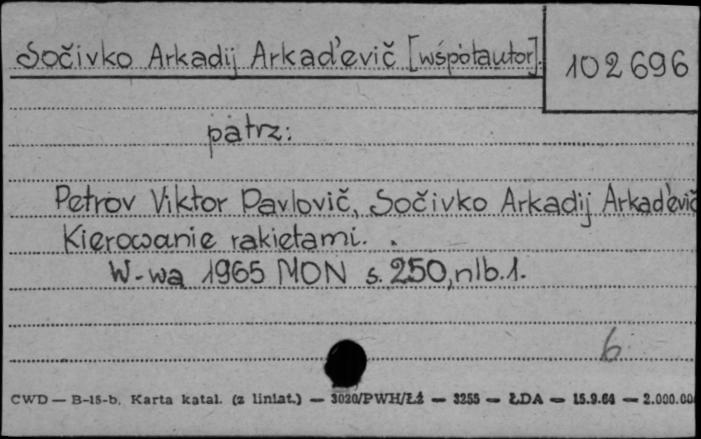 Sočivko Arkadij Arkad'evič [współautor].
102696
patrz:
Petrov Viktor Pavlovič, Sočivko Arkadij Arkad'evič
Kierowanie rakietami.
W-wa 1965 MON s. 250, nlb. 1.
6
CWD — B-15-b. Karta katal. (z liniat.) — 3020/PWH/ŁŻ — 3255 — ŁDA — 15.9.64 — 2.000.00